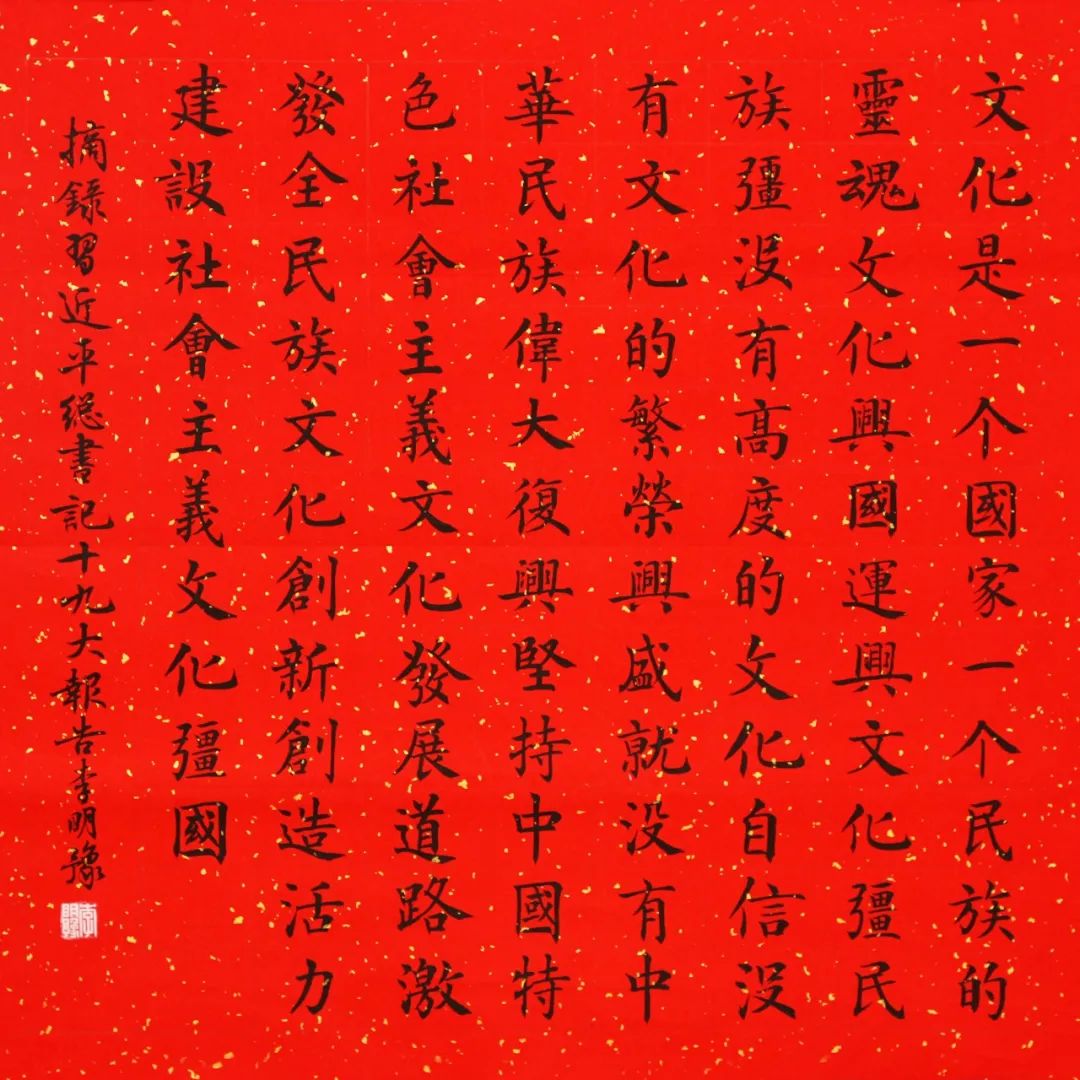 文化是一个國家一个民族的
靈魂文化興國運興文化彊民
族彊没有高度的文化自信没
有文化的繁榮興盛就没有中
華民族偉大復興堅持中國特
色社會主義文化發展道路激
發全民族文化創新創造活力
建設社會主義文化彊國
摘録習近平總書記十九大報告李明豫